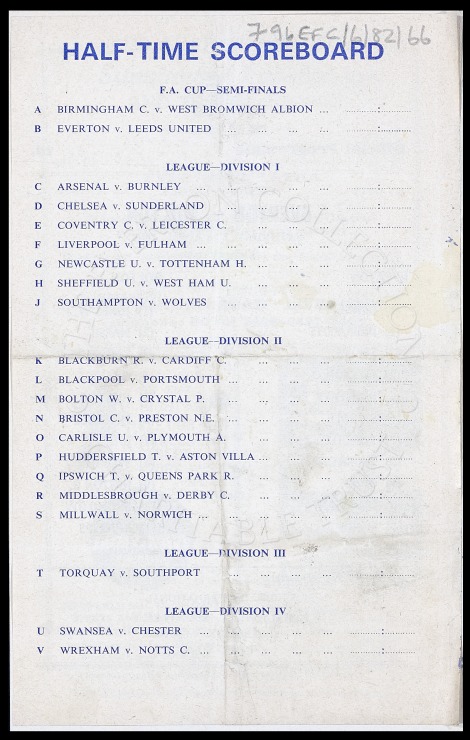 796EFC/6/82/66
HALF-TIME SCOREBOARD
F.A. CUP—SEMI-FINALS
A BIRMINGHAM C. v. WEST BROMWICH ALBION ... ..........:..........
B EVERTON v. LEEDS UNITED ... ... ... ..........:..........
LEAGUE—DIVISION I
C ARSENAL v. BURNLEY ... ... ... ... ..........:..........
D CHELSEA v. SUNDERLAND ... ... ... ..........:..........
E COVENTRY C. v. LEICESTER C. ... ... ... ..........:..........
F LIVERPOOL v. FULHAM ... ... ... ... ..........:..........
G NEWCASTLE U. v. TOTTENHAM H. ... ... ... ..........:..........
H SHEFFIELD U. v. WEST HAM U. ... ... ... ..........:..........
J SOUTHAMPTON v. WOLVES ... ... ... ... ..........:..........
LEAGUE—DIVISION II
K BLACKBURN R. v. CARDIFF C. ... ... ... ..........:..........
L BLACKPOOL v. PORTSMOUTH ... ... ... ... ..........:..........
M BOLTON W. v. CRYSTAL P. ... ... ... ..........:..........
N BRISTOL C. v. PRESTON N.E. ... ... ... ..........:..........
O CARLISLE U. v. PLYMOUTH A. ... ... ... ..........:..........
P HUDDERSFIELD T. v. ASTON VILLA ... ... ... ..........:..........
Q IPSWICH T. v. QUEENS PARK R. ... ... ... ..........:..........
R MIDDLESBROUGH v. DERBY C. ... ... ... ..........:..........
S MILLWALL v. NORWICH ... ... ... ... ..........:..........
LEAGUE—DIVISION III
T TORQUAY v. SOUTHPORT ... ... ... ... ..........:..........
LEAGUE—DIVISION IV
U SWANSEA v. CHESTER ... ... ... ... ..........:..........
V WREXHAM v. NOTTS C. ... ... ... ... ..........:..........